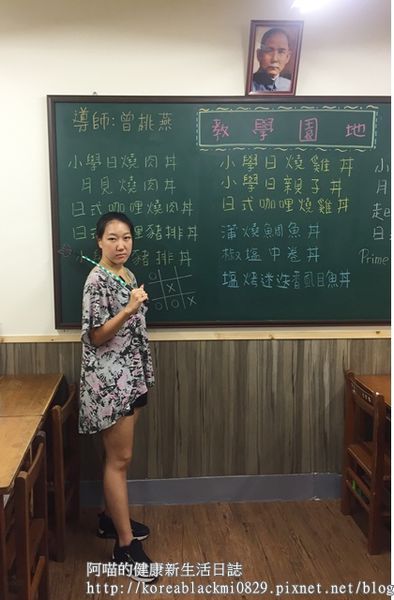 導師:曾桃燕
教學園地
小學日燒肉丼
月見燒肉丼
日式咖哩燒肉丼
日式咖哩豬排丼
豬排丼
小學日燒雞丼
小學日親子丼
日式咖哩燒雞丼
蒲燒鯛魚丼
椒塩中卷丼
塩烤迷迭香虱目魚丼
Prime
阿喵的健康新生活日誌
http://koreablackmi0829.pixnet.net/blog